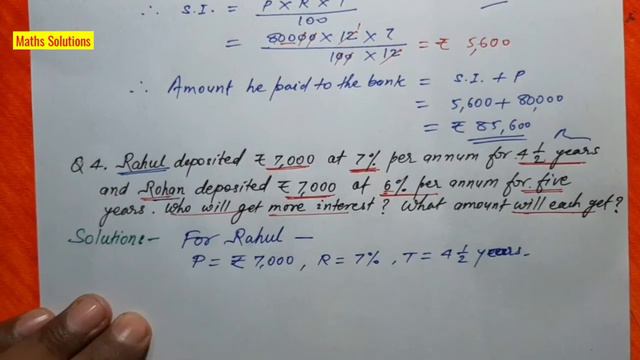 Maths Solutions
∴ S.I. = P × R × T / 100
= 80000 × 12 × 7 / 100 × 12 = ₹ 5,600
∴ Amount he paid to the bank = S.I. + P
= 5,600 + 80,000
= ₹ 85,600
Q 4. Rahul deposited ₹ 7,000 at 7% per annum for 4 1/2 years
and Rohan deposited ₹ 7,000 at 6% per annum for five
years. Who will get more interest? What amount will each get?
Solution:- For Rahul —
P = ₹ 7,000, R = 7%, T = 4 1/2 years.